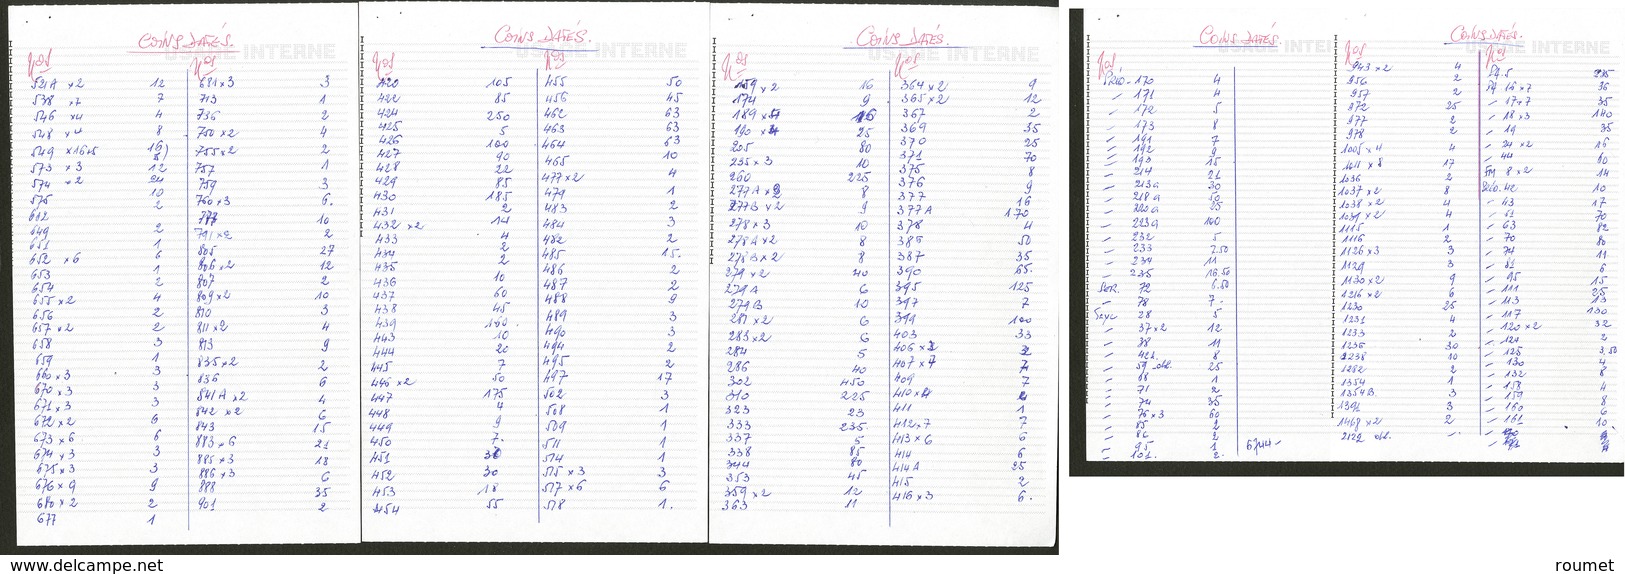 COINS DATÉS.
USAGE INTERNE
Nos
Nos
521A x2 12
538 x7 7
546 x4 4
548 x4 8
573 x3 12
574 x2
575
602
649 2
651 1
652 x6 6
653 1
654 2
655 x2 4
656 2
657 x2 2
658 3
659 1
660 x3 3
670 x3 3
671 x3 3
672 x2 6
673 x6 6
674 x3 3
675 x3 3
676 x9 9
680 x2 2
677 1
681 x3 3
713 1
736 2
750 x2 4
755 x2 2
757 1
759 3
760 x3 6.
791 x2 2
805 27
806 x2 12
807 2
809 x2 10
810 3
811 x2 4
813 9
835 x2
836 6
841A x2 4
842 x2 6
843 15
883 x6 21
885 x3 18
886 x3 6
888 35
901 2
COINS DATÉS.
USAGE INTERNE
Nos
Nos
420 105
422 85
424 250
425 5
426 100
427 90
428 22
429 85
430 185
431 2
432 x2 14
433 4
434 2
435 2
436 10
437 60
438 45
439
443 10
444 20
445 7
446 x2 50
447 175
448 4
449 9
450 7.
451
452 30
453 18
454 55
455 50
456 45
462 63
463 63
464 63
465 10
477 x2 4
479 1
483 2
484 3
482 2
485 15.
486 2
487 2
488 9
489 3
490 3
494 2
495 2
497 17
502 3
508 1
509 1
511 1
514 1
515 x3 3
517 x6 6
518 1.
COINS DATÉS.
USAGE INTERNE
Nos
Nos
159 x2 16
174 9
189
190 25
205 80
235 x3 10
260 225
277A 8
277B x2 9
278 x3 10
278A x2 8
278B x2 8
279 x2 40
279A 6
279B 10
281 x2 6
283 x2 6
284 5
286 40
302 450
310 225
323 23
333 235.
337 5
338 85
344 80
353 45
359 x2 12
363 11
364 x2 9
365 x2 12
367 2
369 35
370 25
371 70
375 8
376 9
377 16
377A 170
378 4
386 50
387 35
390 65.
395 125
397 7
399 100
403 33
406
407 x7
409 7
410
411 1
412 x7 7
413 x6 6
414 6
414A 25
415 2
416 x3 6.
COINS DATÉS
USAGE INTERNE
Nos
PRÉO. - 170 4
- 171 4
- 172 5
- 173 8
- 191 7
- 192 9
- 193 15
- 214 21
- 213a 30
- 218a 50
- 220a 25
- 223a 100
- 232 5
- 233 2.50
- 234 11
- 235 16.50
SER. 72 6.50
- 78 7.-
Taxe 28 5
- 37 x2 12
- 38 11
- 42A. 8
- 59 obl. 25
- 68 1
- 71 2
- 74 35
- 76 x3 60
- 85 2
- 86 2
- 95 1
- 101. 2.
6744-
COINS DATÉS.
USAGE INTERNE
Nos
Nos
943 x2 4
956 2
957 2
972 25
977 2
978 2
1005 x4 4
1015 x8 17
1036 2
1037 x2 8
1038 x2 4
1039 x2 4
1115 1
1116 2
1126 x3 3
1129 3
1130 x2 9
1216 x2 6
1230 25
1231 4
1233 2
1236 30
1238 10
1282 2
1354 1
1354B 3
1391 3
1468 x2 2
2122 obl. -
PA. 5
PA 16 x7 36
- 17 x7 35
- 18 x3 140
- 19 35
- 24 x2 16
- 44 10
FM 8 x2 14
PRÉO. 42 10
- 43 17
- 61 70
- 63 82
- 70 80
- 74 11
- 81 6
- 95 15
- 111 25
- 113 13
- 117 130
- 120 x2 32
- 124 2
- 125 3.50
- 130 4
- 132 8
- 158 4
- 159 8
- 160 6
- 161 10
www.delcampe.net
roumet